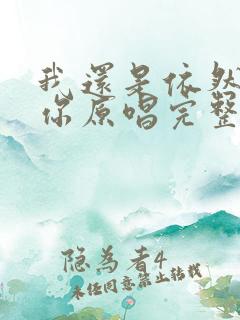 我還是依然
你原唱完整
隐为者4
未经同意禁止转载